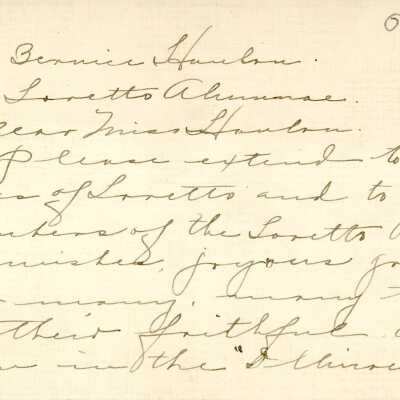 O
Bernice Hanlon.
Loretto Alumnae.
Dear Miss Hanlon.
Please extend to
es of Loretto and to
mbers of the Loretto A
wishes, joyous gr
many, many
their faithful
in the "